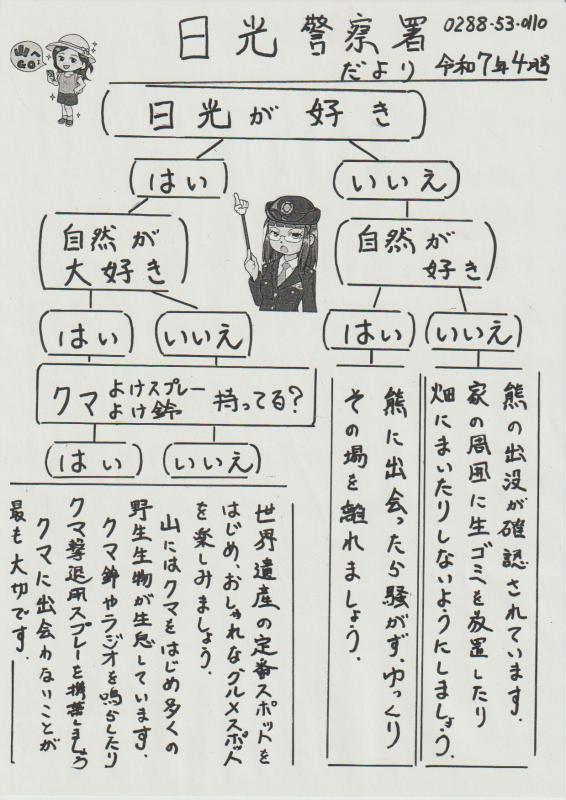 山～
GO♪
日光警察署
だより
0288-53-0110
令和7年4月号
日光が好き
はい
いいえ
自然が
大好き
自然が
好き
はい
いいえ
はい
いいえ
クマよけスプレー
よけ鈴
持ってる？
はい
いいえ
熊の出没が確認されています.
家の周囲に生ゴミを放置したり
畑にまいたりしないようにしましょう.
熊に出会ったら騒がず、ゆっくり
その場を離れましょう.
世界遺産の定番スポットを
はじめ、おしゃれなグルメスポット
を楽しみましょう.
山にはクマをはじめ多くの
野生生物が生息しています.
クマ鈴やラジオを鳴らしたり
クマ撃退用スプレーを携帯しましょう
クマに出会わないことが
最も大切です.